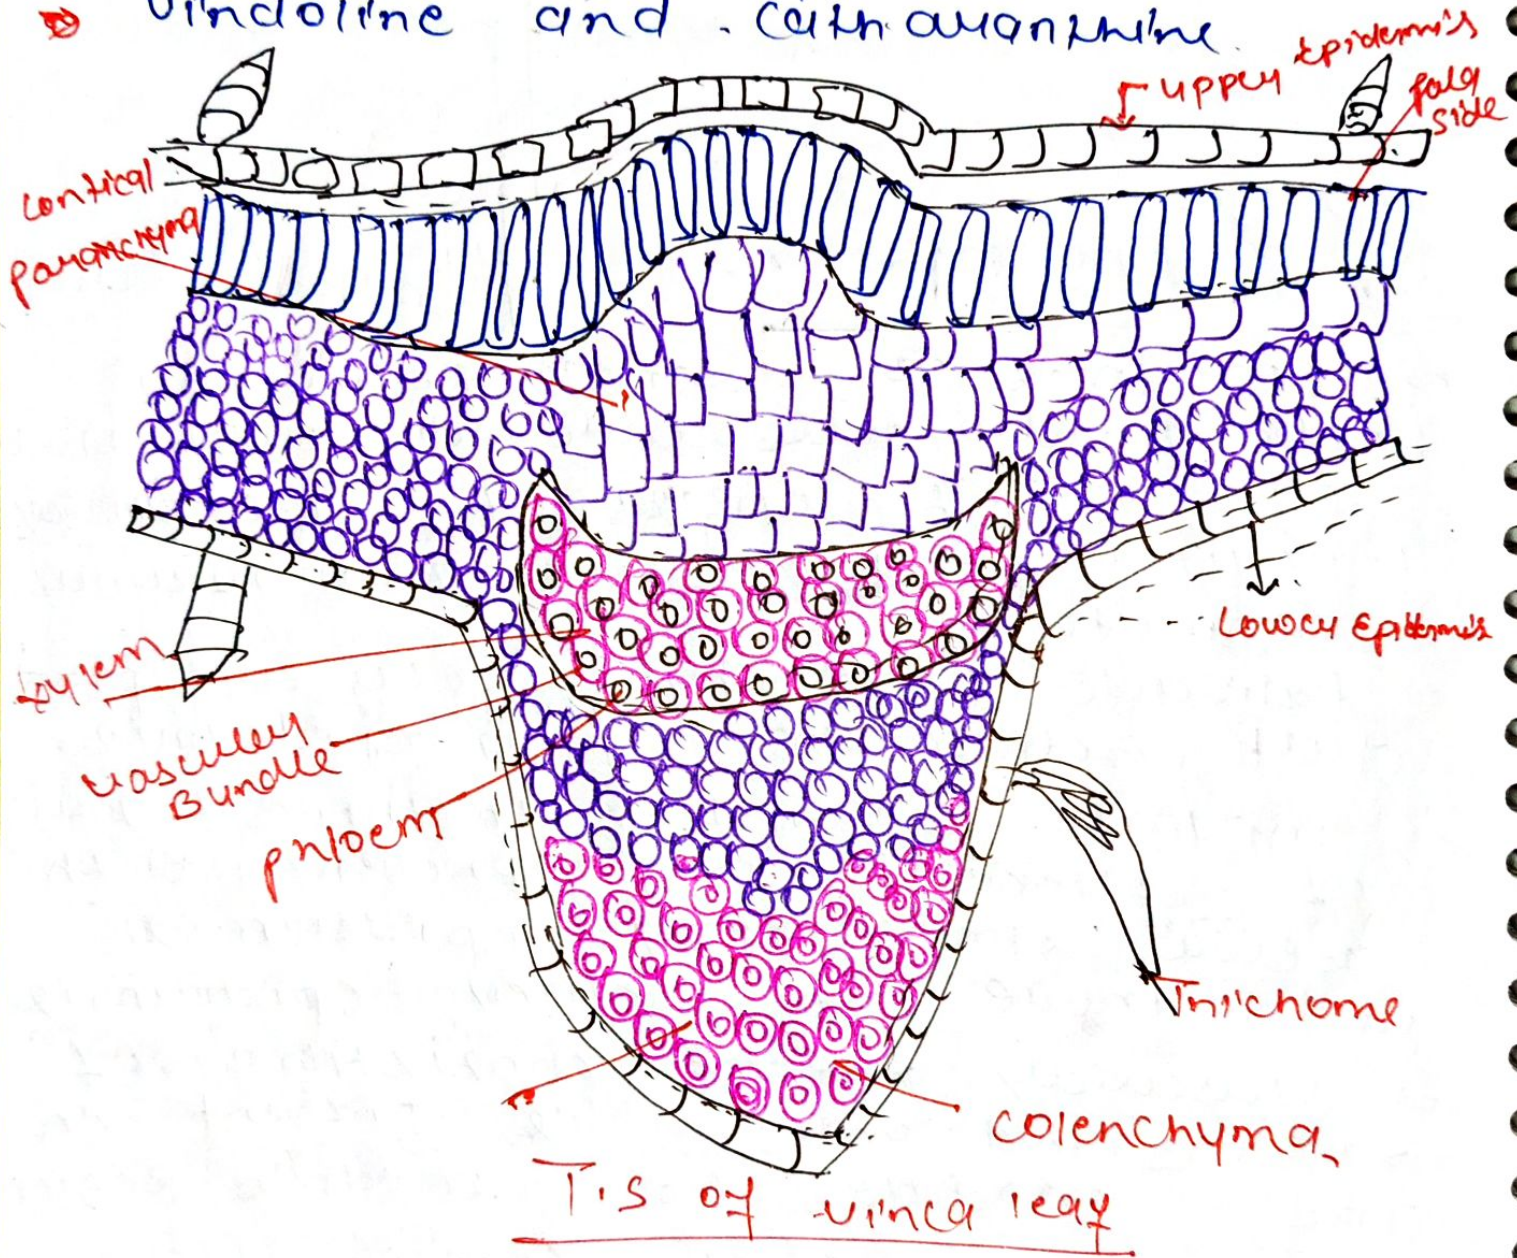 Vindoline and Catharanthine.
Upper Epidermis
Palg
side
Contical
Paranchyma
Lower Epidermis
Xylem
Vascular
Bundle
Phloem
Trichome
Colenchyma
T.S of vinca leaf